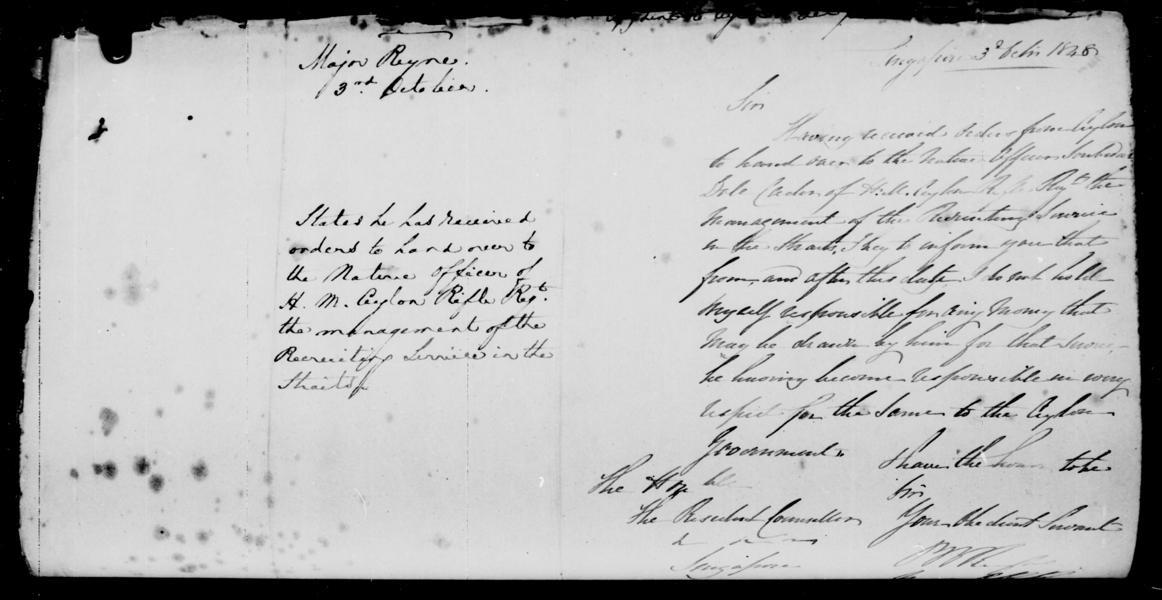 Major Reyne.
3rd. October.
States he has received
orders to hand over to
the Native Officer of
H. M. Ceylon Rifle Regt.
the management of the
Recruiting Service in the
Straits
Singapore 3d Octbr 1848
Sir
Having received orders from Ceylon
to hand over to the Native Officer
of H.M. Ceylon R. Regt. the
Management of the Recruiting Service
in the Straits, I beg to inform you that
from, and after this date, I do not hold
myself responsible for any Money that
may be drawn by him for that Service,
he having become responsible in every
respect for the Same to the Ceylon
Government.
I have the honor to be
Sir
Your Obedient Servant
The Honble
The Resident Councillor
Singapore